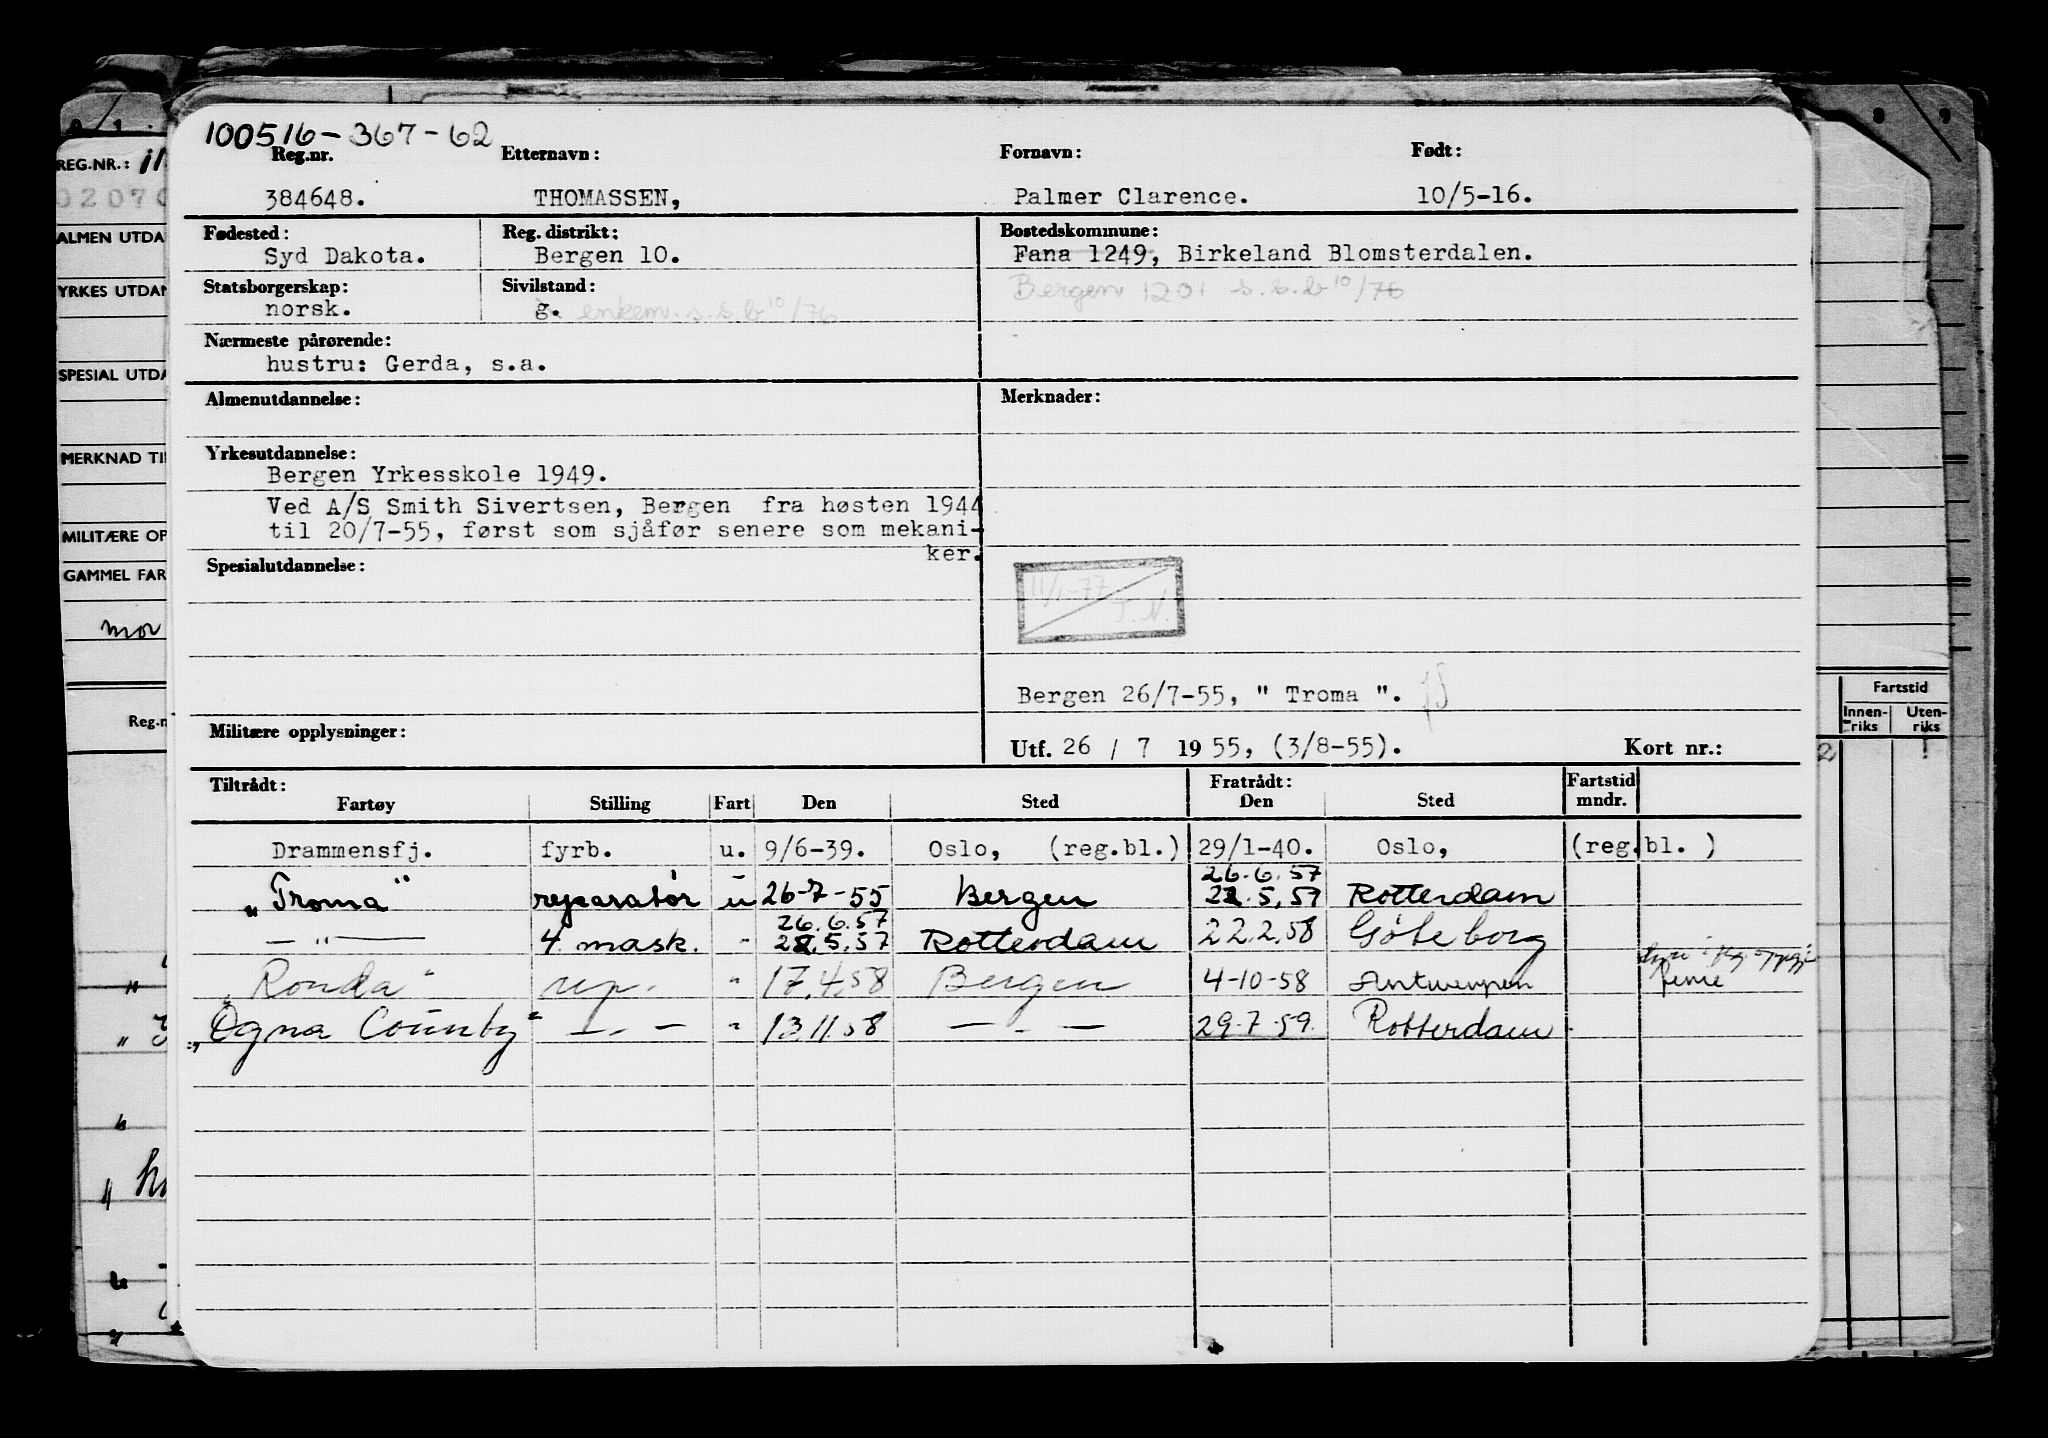 100516-367-62
Reg.nr. Etternavn: Fornavn: Født:
384648. THOMASSEN, Palmer Clarence. 10/5-16.
Fødested: Reg. distrikt: Bostedskommune:
Syd Dakota. Bergen 10. Fana 1249, Birkeland Blomsterdalen.
Statsborgerskap: Sivilstand: Bergen 1201 s.s.b 10/76
norsk. g. enkem. s.s.b 10/76
Nærmeste pårørende:
hustru: Gerda, s.a.
Almenutdannelse: Merknader:
Yrkesutdannelse:
Bergen Yrkesskole 1949.
Ved A/S Smith Sivertsen, Bergen fra høsten 1944
til 20/7-55, først som sjåfør senere som mekani-
ker.
Spesialutdannelse:
11/1-77
T.N.
Bergen 26/7-55, " Troma ".
Militære opplysninger:
Utf. 26 / 7 1955, (3/8-55). Kort nr.:
Tiltrådt: Fratrådt: Fartstid
Fartøy Stilling Fart Den Sted Den Sted mndr.
Drammensfj. fyrb. u. 9/6-39. Oslo, (reg.bl.) 29/1-40. Oslo, (reg.bl. )
26.6.57
"Troma" reparatør u 26-7-55 Bergen 22.5.57 Rotterdam
26.6.57
— " — 4 mask. " 28.5.57 Rotterdam 22.2.58 Göteborg
"Ronda" rep. " 17.4.58 Bergen 4-10-58 Antwerpen ferie
"Ogna County" — " — " 13.11.58 — " — 29.7.59. Rotterdam
REG.NR.:
0207
ALMEN UTDA
YRKES UTDAN
SPESIAL UTDA
MERKNAD TI
MILITÆRE OP
GAMMEL FAR
mor
Reg.n
8 9
Fartstid
Innen-
riks
Uten-
riks